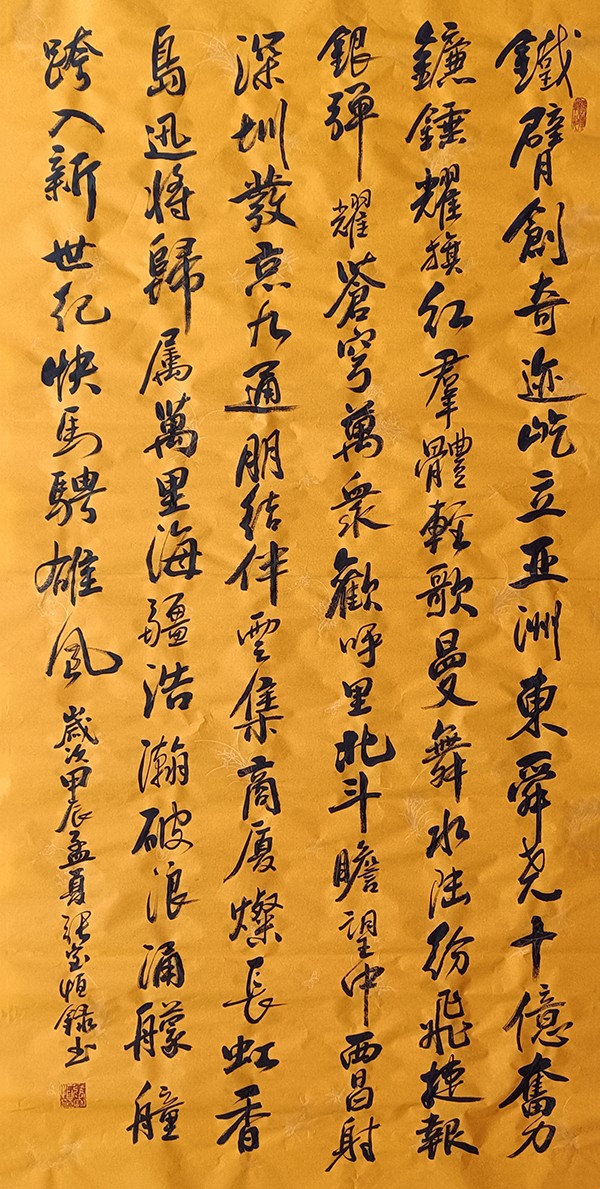 鐵臂創奇迹屹立亚洲東舜堯十億奮力
鐮錘耀旗紅羣體輕歌曼舞水陸紛飛捷報
銀彈耀蒼穹萬衆歡呼里北斗瞻望中西昌射
深圳發京九通朋結伴雲集商廈燦長虹香
島迅將歸属萬里海疆浩瀚破浪涌艨艟
跨入新世紀快馬騁雄風
歲次甲辰孟夏張宝恒録书